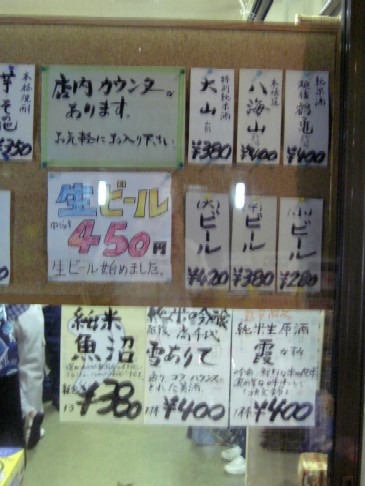 本格焼酎
芋 その他
¥350
店内カウンター
あります。
お気軽にお入り下さい
特別純米酒
大山
¥380
本醸造
八海山
¥400
純米酒
越後鶴亀
¥400
生ビール
中ジョッキ
450円
生ビール始めました。
(大)
ビール
¥420
(中)
ビール
¥380
(小)
ビール
¥280
純米
魚沼
¥380
純米吟醸
高千代
雪ありて
香り、コク、バランスの
とれた美酒
1杯 ¥400
純米生原酒
霞
1杯 ¥400